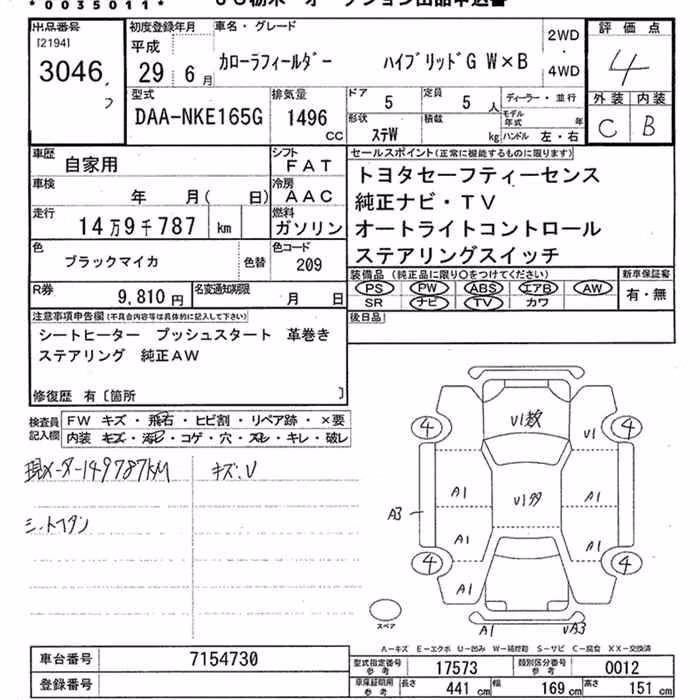 *0035011*
出品番号
[2194]
3046
初度登録年月
平成
29 6月
車名・グレード
カローラフィールダー ハイブリッドG W×B
2WD
・
4WD
評価点
4
外装 内装
C B
型式
DAA-NKE165G
排気量
1496
CC
ドア 5
定員 5人
形状 ステW
積載 kg
ディーラー・並行
モデル年式 年
ハンドル 左・右
車歴 自家用
シフト FAT
車検 年 月( 日)
冷房 AAC
走行 14万9千787 km
燃料 ガソリン
色 ブラックマイカ 色替
色コード 209
R券 9,810円
名変通知期限 月 日
セールスポイント(正常に機能するものに限ります)
トヨタセーフティーセンス
純正ナビ・TV
オートライトコントロール
ステアリングスイッチ
装備品 (純正品に限り○をつけてください)
PS PW ABS エアB AW
SR ナビ TV カワ
新車保証書
有・無
後日品
注意事項申告欄(不具合内容等は具体的に記入して下さい)
シートヒーター プッシュスタート 革巻き
ステアリング 純正AW
修復歴 有〔箇所 〕
検査員記入欄
FW キズ・飛石・ヒビ割・リペア跡・×要
内装 キズ・汚レ・コゲ・穴・スレ・キレ・破レ
現メーター149787KM
キズ、U
4
U1数
U1
4
A1
U1多
A1
A3
A1
A1
4
A1
4
スペア
A1
UA3
A-キズ E-エクボ U-凹ミ W-補修跡 S-サビ C-腐食 XX-交換済
車台番号 7154730
登録番号
型式指定番号 参考 17573
類別区分番号 参考 0012
車庫証明用 参考 長さ 441cm 幅 169cm 高さ 151cm